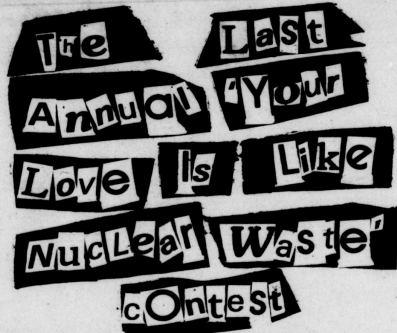 The Last
Annual 'Your
Love Is Like
Nuclear Waste'
contest